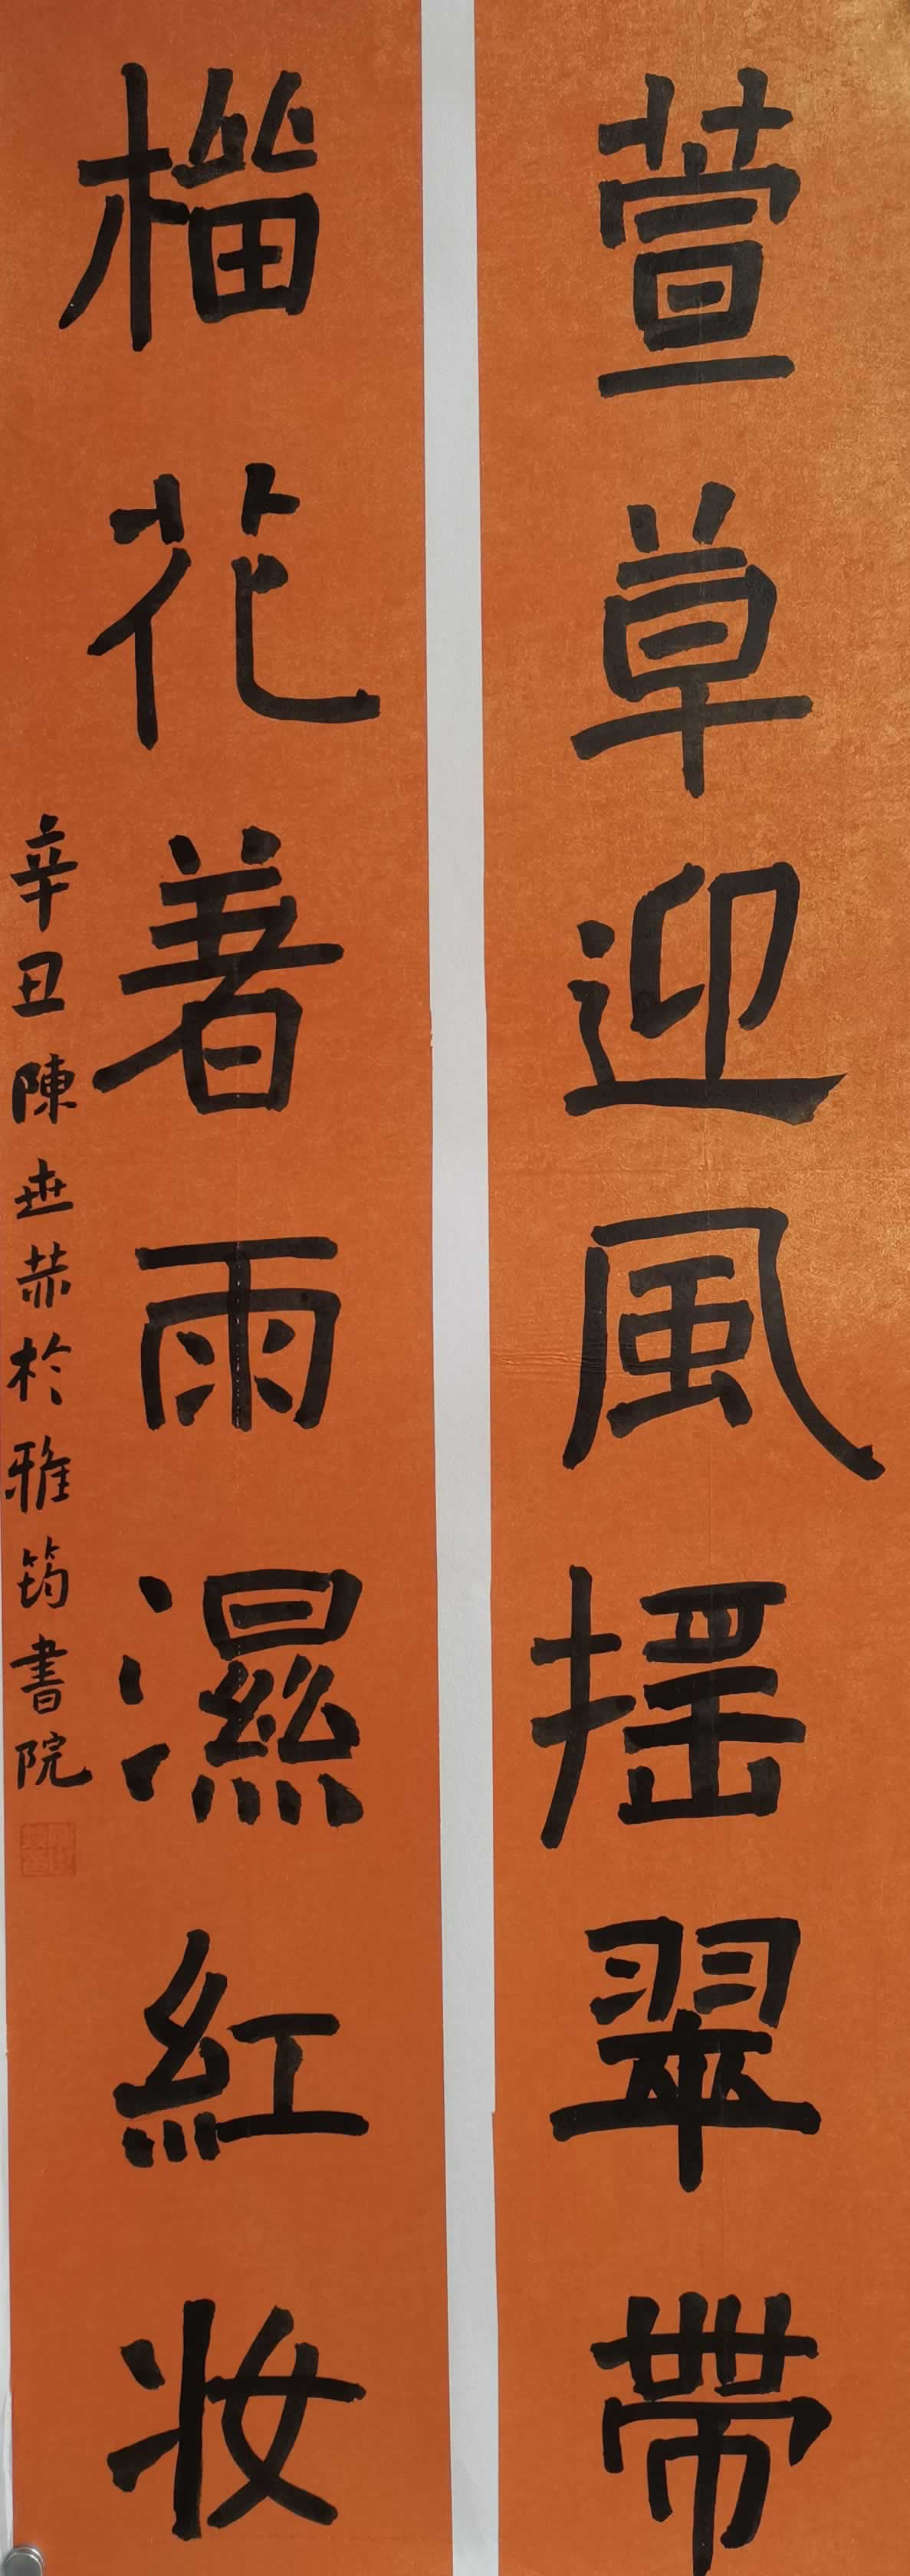 萱草迎風摇翠帶
榴花著雨濕紅妝
辛丑陳世恭於雅筠書院